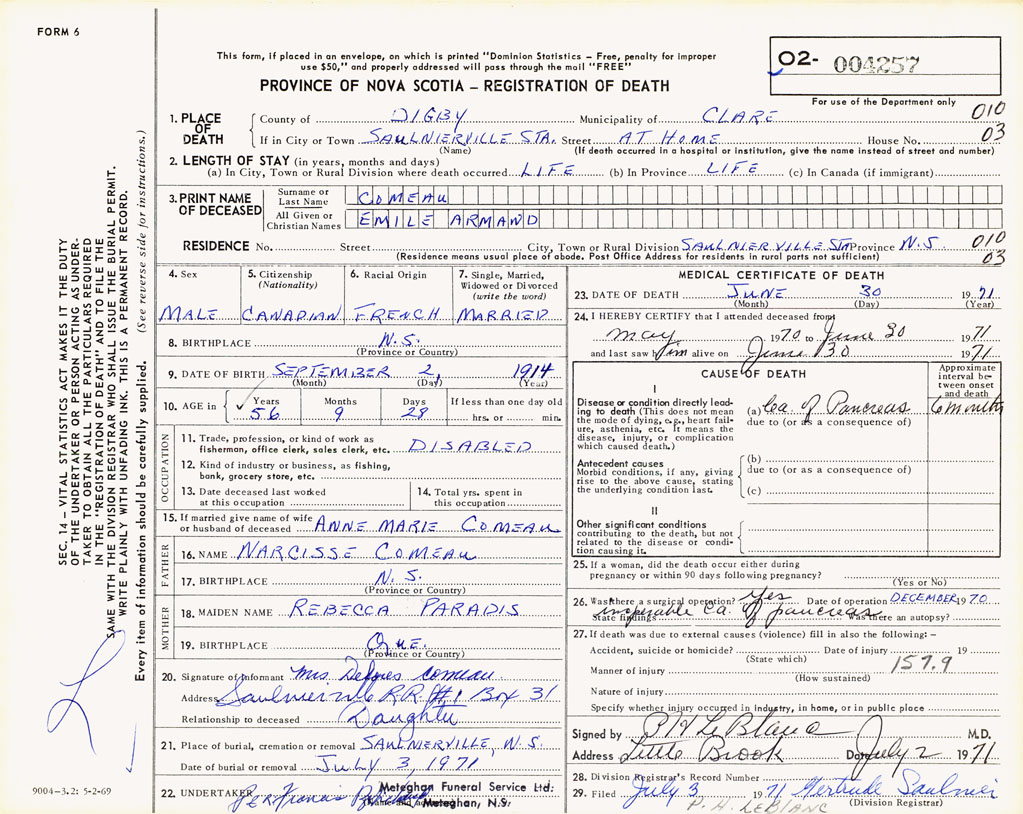 FORM 6
This form, if placed in an envelope, on which is printed "Dominion Statistics – Free, penalty for improper
use $50," and properly addressed will pass through the mail "FREE"
02- 004257
For use of the Department only
PROVINCE OF NOVA SCOTIA – REGISTRATION OF DEATH
1. PLACE OF DEATH
County of DIGBY Municipality of CLARE 010
If in City or Town SAULNIERVILLE STA. Street AT HOME House No. 03
(Name) (If death occurred in a hospital or institution, give the name instead of street and number)
2. LENGTH OF STAY (in years, months and days)
(a) In City, Town or Rural Division where death occurred LIFE (b) In Province LIFE (c) In Canada (if immigrant)
3. PRINT NAME OF DECEASED
Surname or Last Name COMEAU
All Given or Christian Names EMILE ARMAND
RESIDENCE No. Street City, Town or Rural Division SAULNIERVILLE STA Province N.S. 010
(Residence means usual place of abode. Post Office Address for residents in rural parts not sufficient) 03
SEC. 14 – VITAL STATISTICS ACT MAKES IT THE DUTY
OF THE UNDERTAKER OR PERSON ACTING AS UNDER-
TAKER TO OBTAIN ALL THE PARTICULARS REQUIRED
IN THE "REGISTRATION OF DEATH" AND TO FILE THE
SAME WITH THE DIVISION REGISTRAR WHO SHALL ISSUE THE BURIAL PERMIT.
WRITE PLAINLY WITH UNFADING INK. THIS IS A PERMANENT RECORD.
Every item of information should be carefully supplied. (See reverse side for instructions.)
4. Sex
MALE
5. Citizenship (Nationality)
CANADIAN
6. Racial Origin
FRENCH
7. Single, Married, Widowed or Divorced (write the word)
MARRIED
8. BIRTHPLACE N.S.
(Province or Country)
9. DATE OF BIRTH SEPTEMBER 2, 1914
(Month) (Day) (Year)
10. AGE in Years Months Days If less than one day old
✓ 56 9 28 hrs. or min.
OCCUPATION
11. Trade, profession, or kind of work as
fisherman, office clerk, sales clerk, etc. DISABLED
12. Kind of industry or business, as fishing,
bank, grocery store, etc.
13. Date deceased last worked
at this occupation
14. Total yrs. spent in
this occupation
15. If married give name of wife
or husband of deceased ANNE MARIE COMEAU
FATHER
16. NAME NARCISSE COMEAU
17. BIRTHPLACE N.S.
(Province or Country)
MOTHER
18. MAIDEN NAME REBECCA PARADIS
19. BIRTHPLACE QUE.
(Province or Country)
20. Signature of Informant Mrs. Delores Comeau
Address Saulnierville R.R.#1 Box 31
Relationship to deceased Daughter
21. Place of burial, cremation or removal SAULNIERVILLE, N.S.
Date of burial or removal JULY 3, 1971
22. UNDERTAKER Meteghan Funeral Service Ltd.
Meteghan, N.S.
9004-3.2: 5-2-69
MEDICAL CERTIFICATE OF DEATH
23. DATE OF DEATH JUNE 30 1971
(Month) (Day) (Year)
24. I HEREBY CERTIFY that I attended deceased from
May 1970 to June 30 1971
and last saw him alive on June 30 1971
CAUSE OF DEATH
Approximate interval between onset and death
I
Disease or condition directly lead-
ing to death (This does not mean
the mode of dying, e.g., heart fail-
ure, asthenia, etc. It means the
disease, injury, or complication
which caused death.)
(a) Ca. of Pancreas 6 months
due to (or as a consequence of)
Antecedent causes
Morbid conditions, if any, giving
rise to the above cause, stating
the underlying condition last.
(b)
due to (or as a consequence of)
(c)
II
Other significant conditions
contributing to the death, but not
related to the disease or condi-
tion causing it.
25. If a woman, did the death occur either during
pregnancy or within 90 days following pregnancy?
(Yes or No)
26. Was there a surgical operation? Yes Date of operation DECEMBER 1970
State findings inoperable Ca. of pancreas Was there an autopsy?
27. If death was due to external causes (violence) fill in also the following: –
Accident, suicide or homicide? Date of injury 19
(State which) 157.9
Manner of injury
(How sustained)
Nature of injury
Specify whether injury occurred in industry, in home, or in public place
Signed by P H LeBlanc M.D.
Address Little Brook Date July 2 1971
28. Division Registrar's Record Number
29. Filed July 3 1971 Gertrude Saulnier
P. H. LEBLANC (Division Registrar)